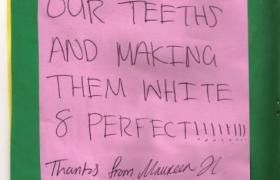 OUR TEETHS
AND MAKING
THEM WHITE
& PERFECT!!!!!!!!!
Thanks from Maureen H